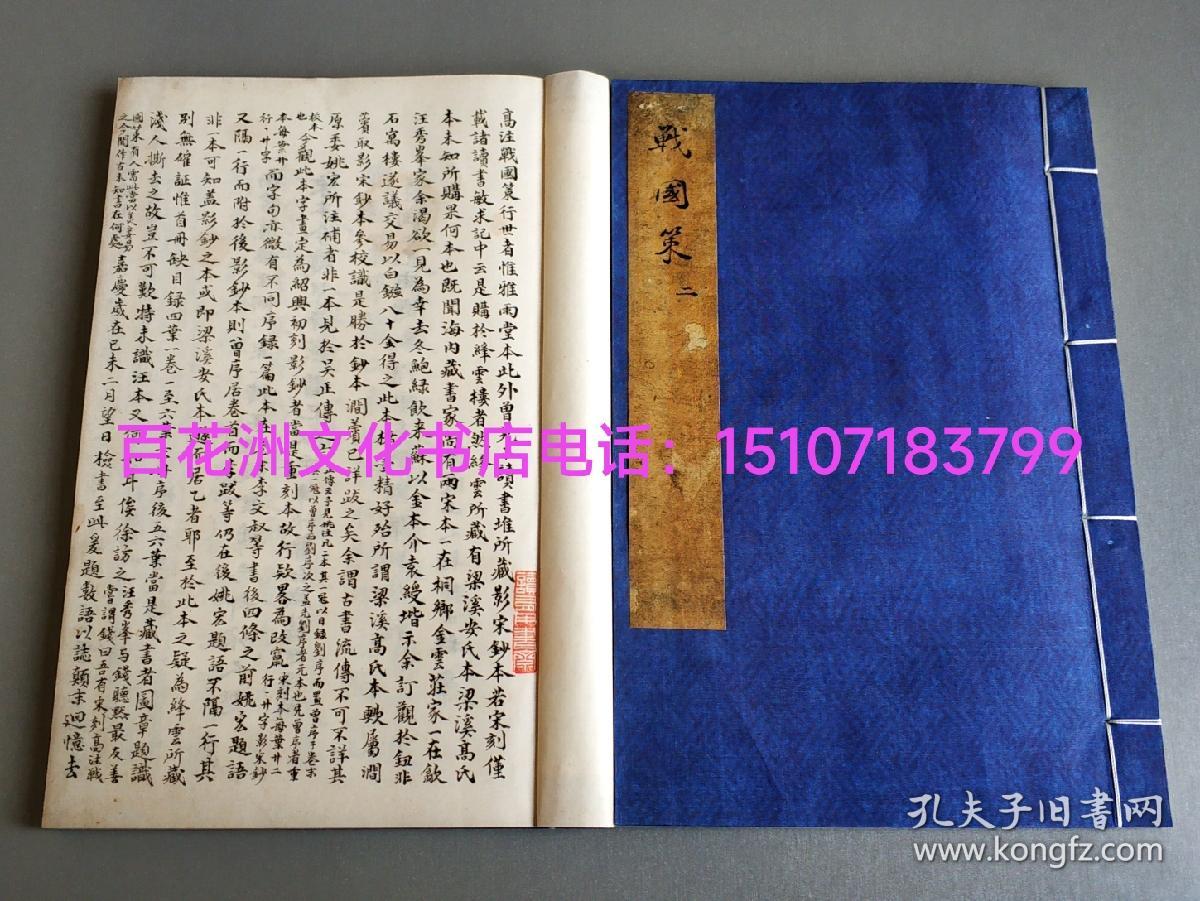 戰國策 二
高注戰國策行世者惟雅雨堂本此外曾
讀書堆所藏影宋鈔本若宋刻僅
載諸讀書敏求記中云是購於絳雲樓者然絳雲所藏有梁溪安氏本梁溪高氏
本未知所購果何本也既聞海内藏書家尚有兩宋本一在桐鄉金雲莊家一在歙
汪秀峯家余渴欲一見為幸去冬鮑綠飲来蘇以金本介袁綬堦示余訂觀於鈕非
石寓樓遂議交易以白鏹八十金得之此本
精好殆所謂梁溪高氏本輭屬澗
薲取影宋鈔本參校識是勝於鈔本澗薲已詳跋之矣余謂古書流傳不可不詳其
原委姚宏所注補者非一本見於吳正傳
校本今觀此本字畫定為紹興初刻影鈔者當是重刻本故行欵畧為改竄
本每葉廿二行行廿字影宋鈔
行廿字而字句亦微有不同序録一篇此本
李文叔等書後四條之前姚宏題語
又隔一行而附於後影鈔本則曾序居卷首而李跋等仍在後姚宏題語不隔一行其
非一本可知蓋影鈔之本或即梁溪安氏本
居乙者耶至於此本之疑為絳雲所藏
别無確証惟首冊缺目録四葉一卷一至六葉
序後五六葉當是藏書者圖章題識
淺人撕去之故豈不可歎特未識汪本又
耳俟徐訪之
汪秀峯與錢聽默最友善
嘗謂錢曰吾有宋刻高注戰
國策有人需此當以美妾易
之今聞作古未知書在何處
嘉慶歲在已未二月望日檢書至此爰題數語以誌顛末迴憶去
百花洲文化书店电话：15107183799
孔夫子旧书网
www.kongfz.com